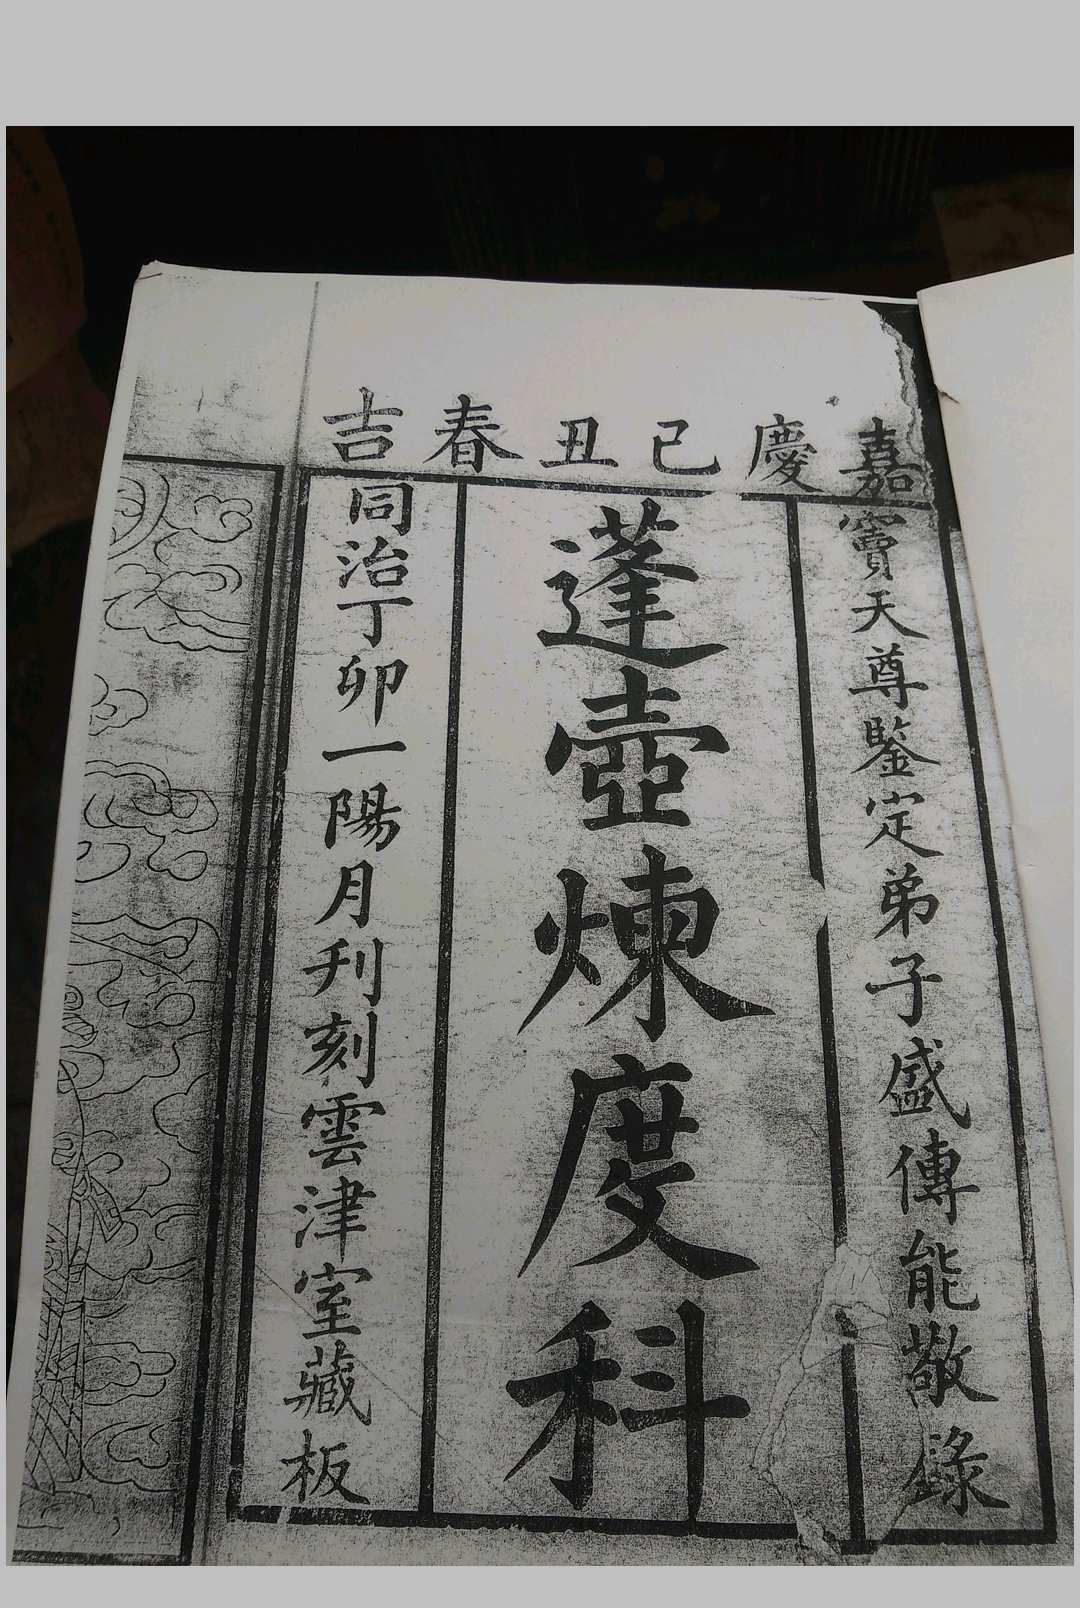 嘉慶己丑春吉
竇天尊鑒定弟子盛傳能敬錄
蓬壺煉度科
同治丁卯一陽月刊刻雲津室藏板